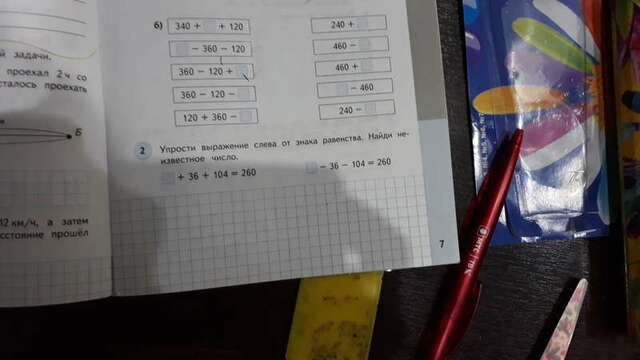 й задачи.
проехал 2 ч со
сталось проехать
Б
12 км/ч, а затем
сстояние прошёл
б)
340 + □ + 120
□ − 360 − 120
360 − 120 + □
360 − 120 − □
120 + 360 − □
240 + □
460 − □
460 + □
□ − 460
240 − □
2 Упрости выражение слева от знака равенства. Найди не-
известное число.
□ + 36 + 104 = 260
□ − 36 − 104 = 260
7